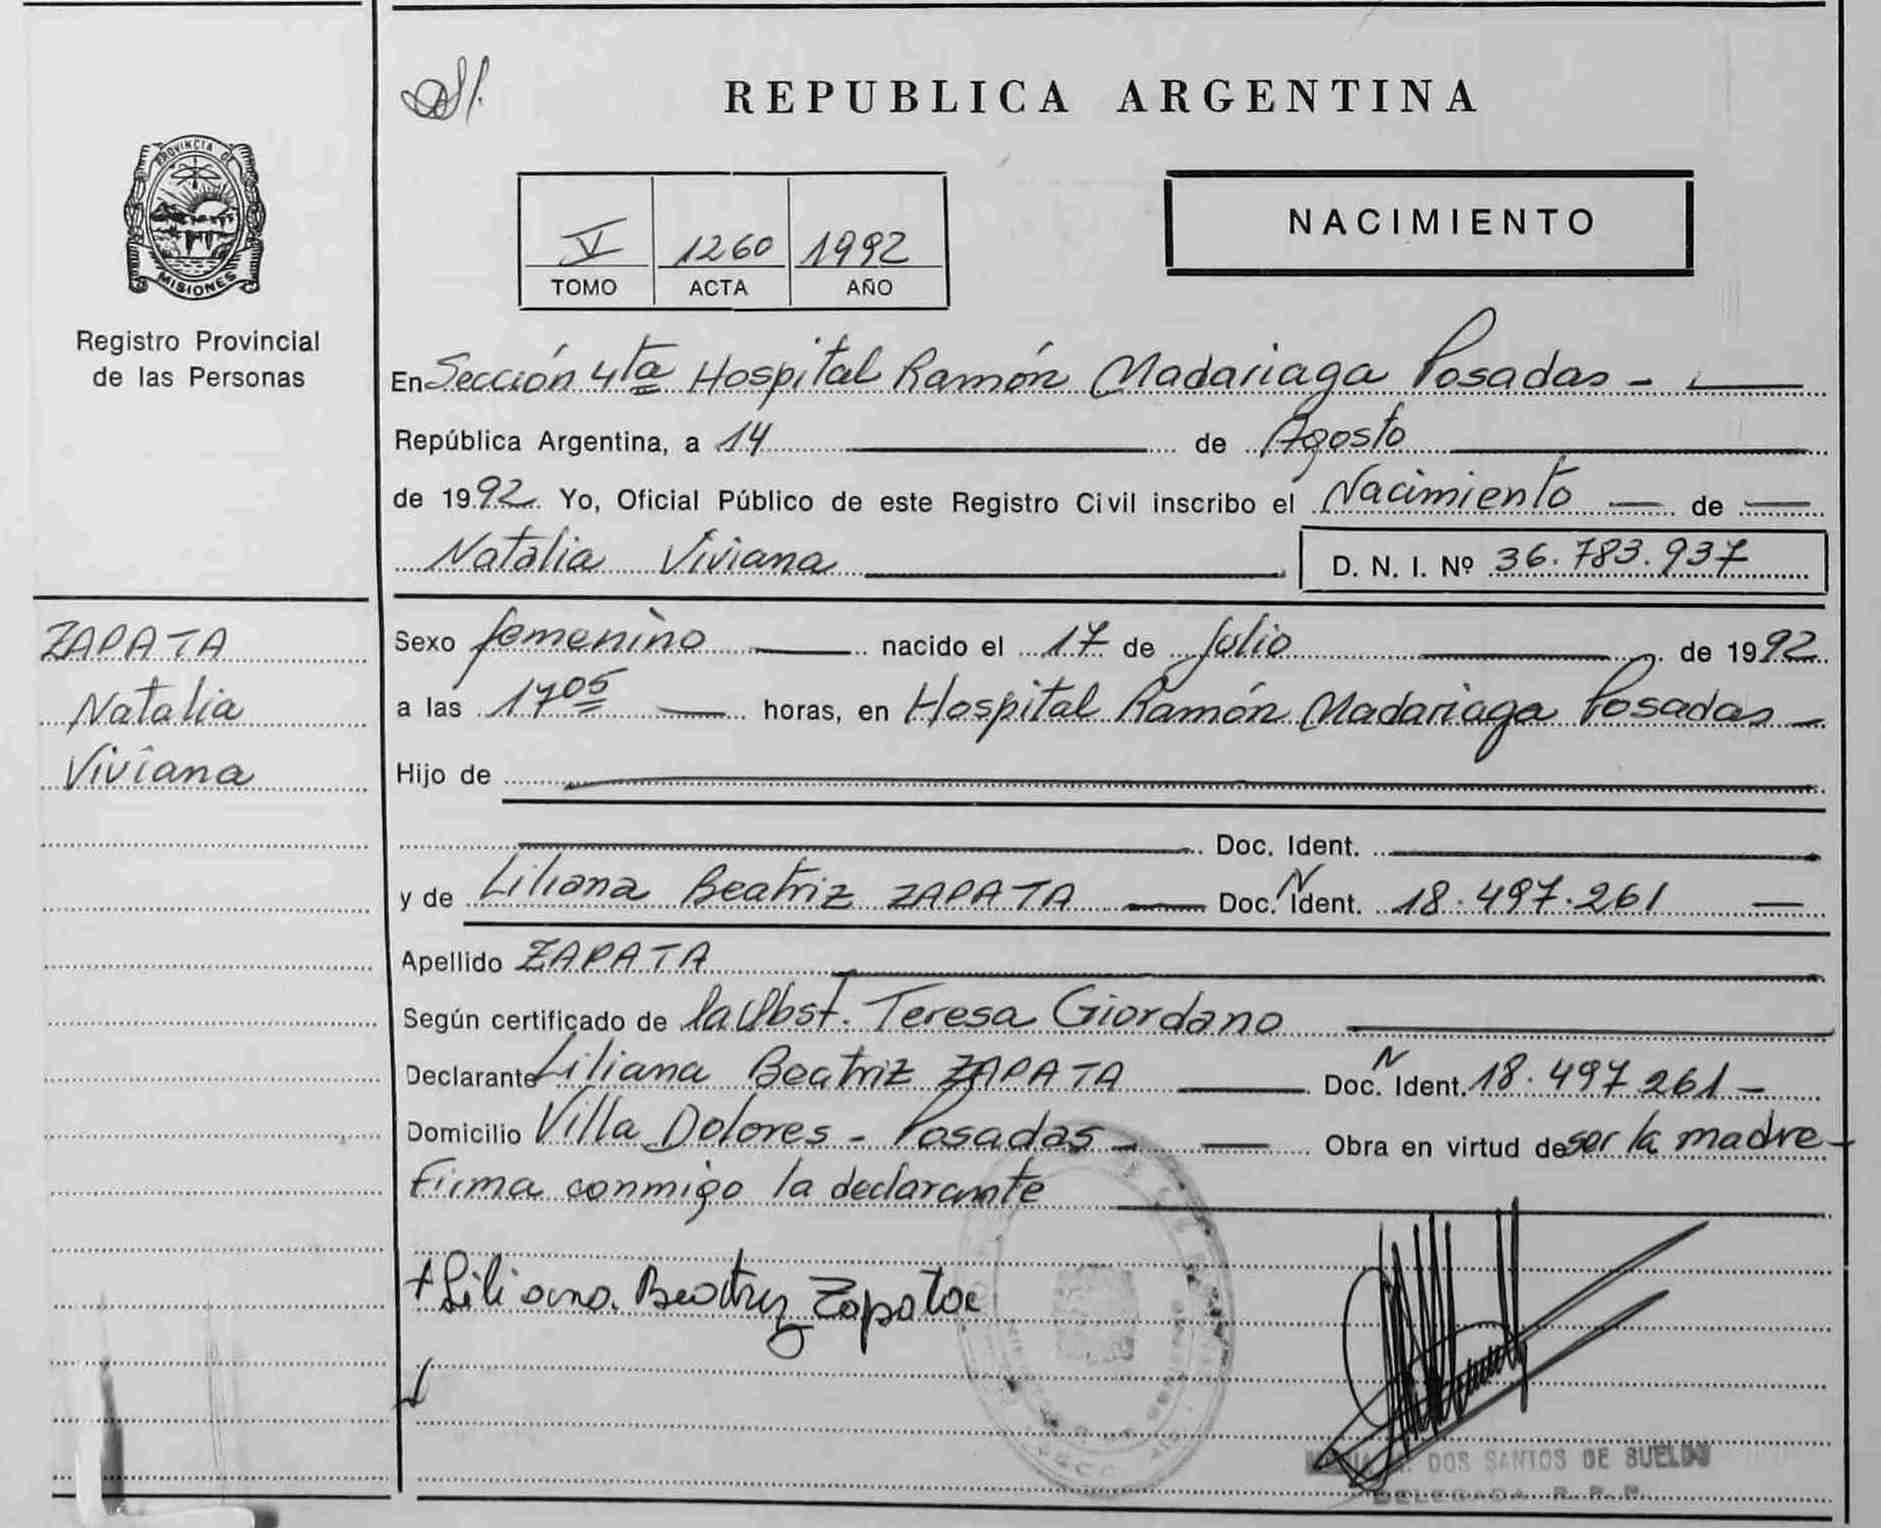 REPUBLICA ARGENTINA
PROVINCIA DE
MISIONES
Registro Provincial
de las Personas
V 1260 1992
TOMO ACTA AÑO
NACIMIENTO
En Sección 4ta Hospital Ramón Madariaga Posadas -
República Argentina, a 14 de Agosto
de 1992 Yo, Oficial Público de este Registro Civil inscribo el Nacimiento de
Natalia Viviana D. N. I. Nº 36.783.937
ZAPATA
Natalia
Viviana
Sexo femenino nacido el 17 de Julio de 1992
a las 17 05 horas, en Hospital Ramón Madariaga Posadas
Hijo de
Doc. Ident.
y de Liliana Beatriz ZAPATA Doc. N Ident. 18.497.261
Apellido ZAPATA
Según certificado de la Obst. Teresa Giordano
Declarante Liliana Beatriz ZAPATA Doc. N Ident. 18.497.261 -
Domicilio Villa Dolores - Posadas - Obra en virtud de ser la madre -
Firma conmigo la declarante
+ Liliana Beatriz Zapata
DOS SANTOS DE SUELDO
DELEGADA R. P. P.